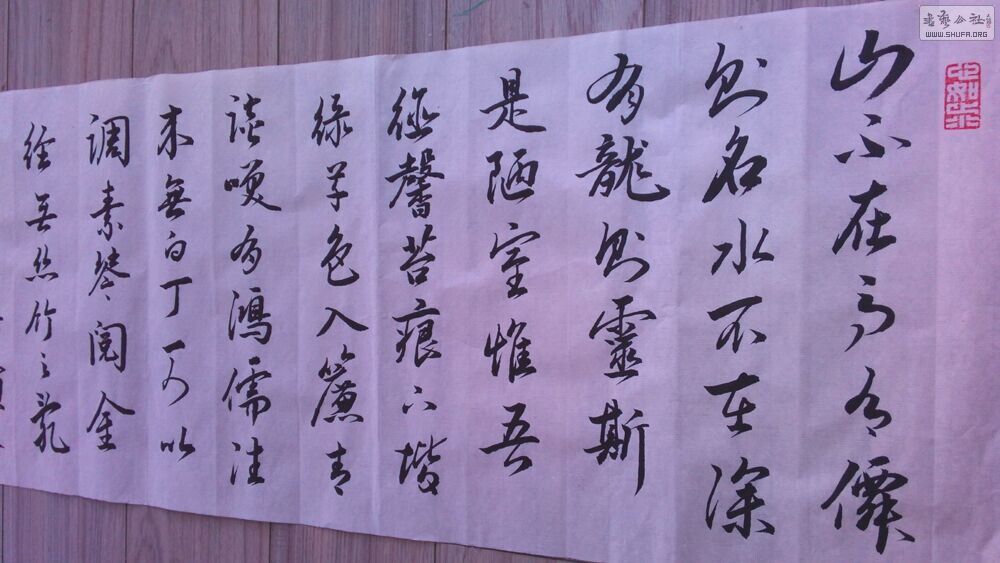 山不在高有僊
则名水不在深
有龍则靈斯
是陋室惟吾
德馨苔痕上堦
绿草色入簾青
谈咲有鴻儒往
来無白丁可以
调素琴阅金
经无丝竹之乱
书艺公社
WWW.SHUFA.ORG